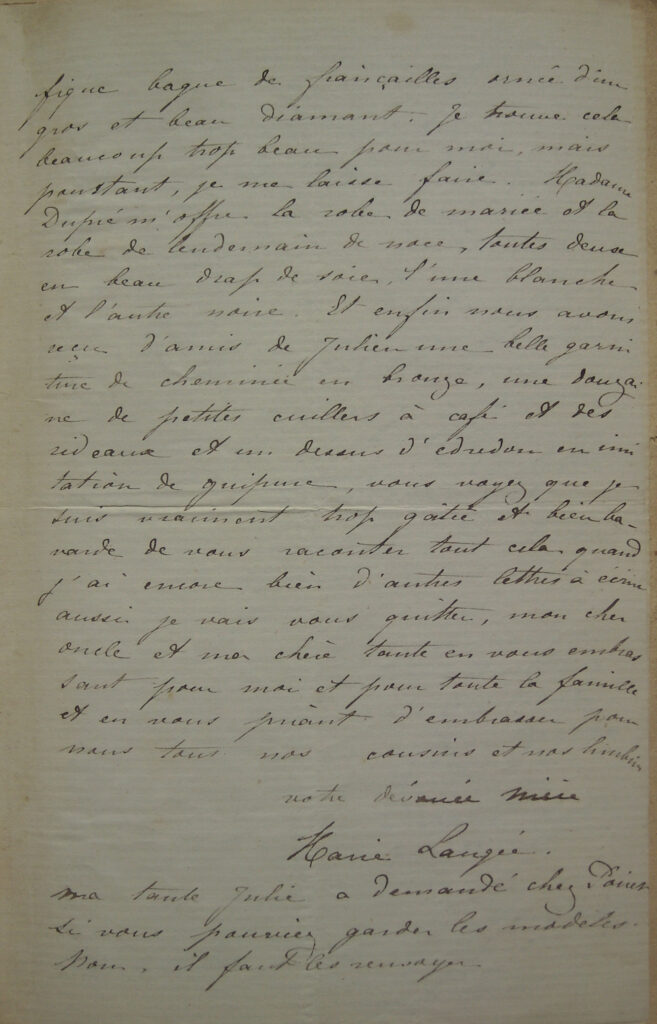 fique bague de fiançailles ornée d'un
gros et beau diamant. Je trouve cela
beaucoup trop beau pour moi, mais
pourtant, je me laisse faire. Madame
Dupré m'offre la robe de mariée et la
robe de lendemain de noce, toutes deux
en beau drap de soie, l'une blanche
et l'autre noire. Et enfin nous avons
reçu d'amis de Julien une belle garni
ture de cheminée en bronze, une douzai
ne de petites cuillers à café et des
rideaux et un dessus d'édredon en imi
tation de guipure, vous voyez que je
suis vraiment trop gâtée et bien ba-
varde de vous raconter tout cela quand
j'ai encore bien d'autres lettres à écrire
aussi je vais vous quitter, mon cher
oncle et ma chère tante en vous embras
sant pour moi et pour toute la famille
et en vous priant d'embrasser pour
nous tous nos cousins et nos
votre dévouée nièce
Marie Laugée.
ma tante Julie a demandé chez
si vous pouviez garder les modèles.
Non, il faut les renvoyer